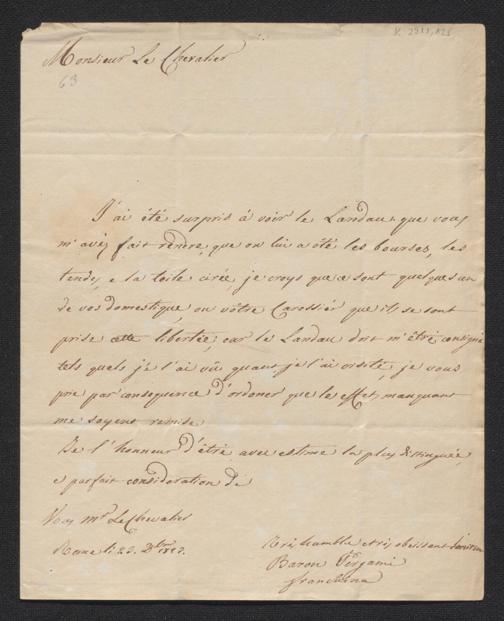 Monsieur Le Chevalier
63
J'ai été surpris à voir le Landau, que vous
m'avéz fait rendre, que on lui a ôté les bourses, les
tendes, e la toile cirée, je croys que ce sont quelques un
de vos domestique ou vôtre Carossiér que ils se sont
prise cette libertée, car le Landau doit m'être consigné
tels quels je l'ai vû quant je l'ai , je vous
prie par consequence d'ordoner que le effet manquant
me soyent remise
De l'honneur d'être avec estime la plus distinguée,
e parfait consideration de
Vous Mr Le Chevalier
Rome li 23.
Très humble e très obeissant Serviteur
Baron Pergami
Franchina